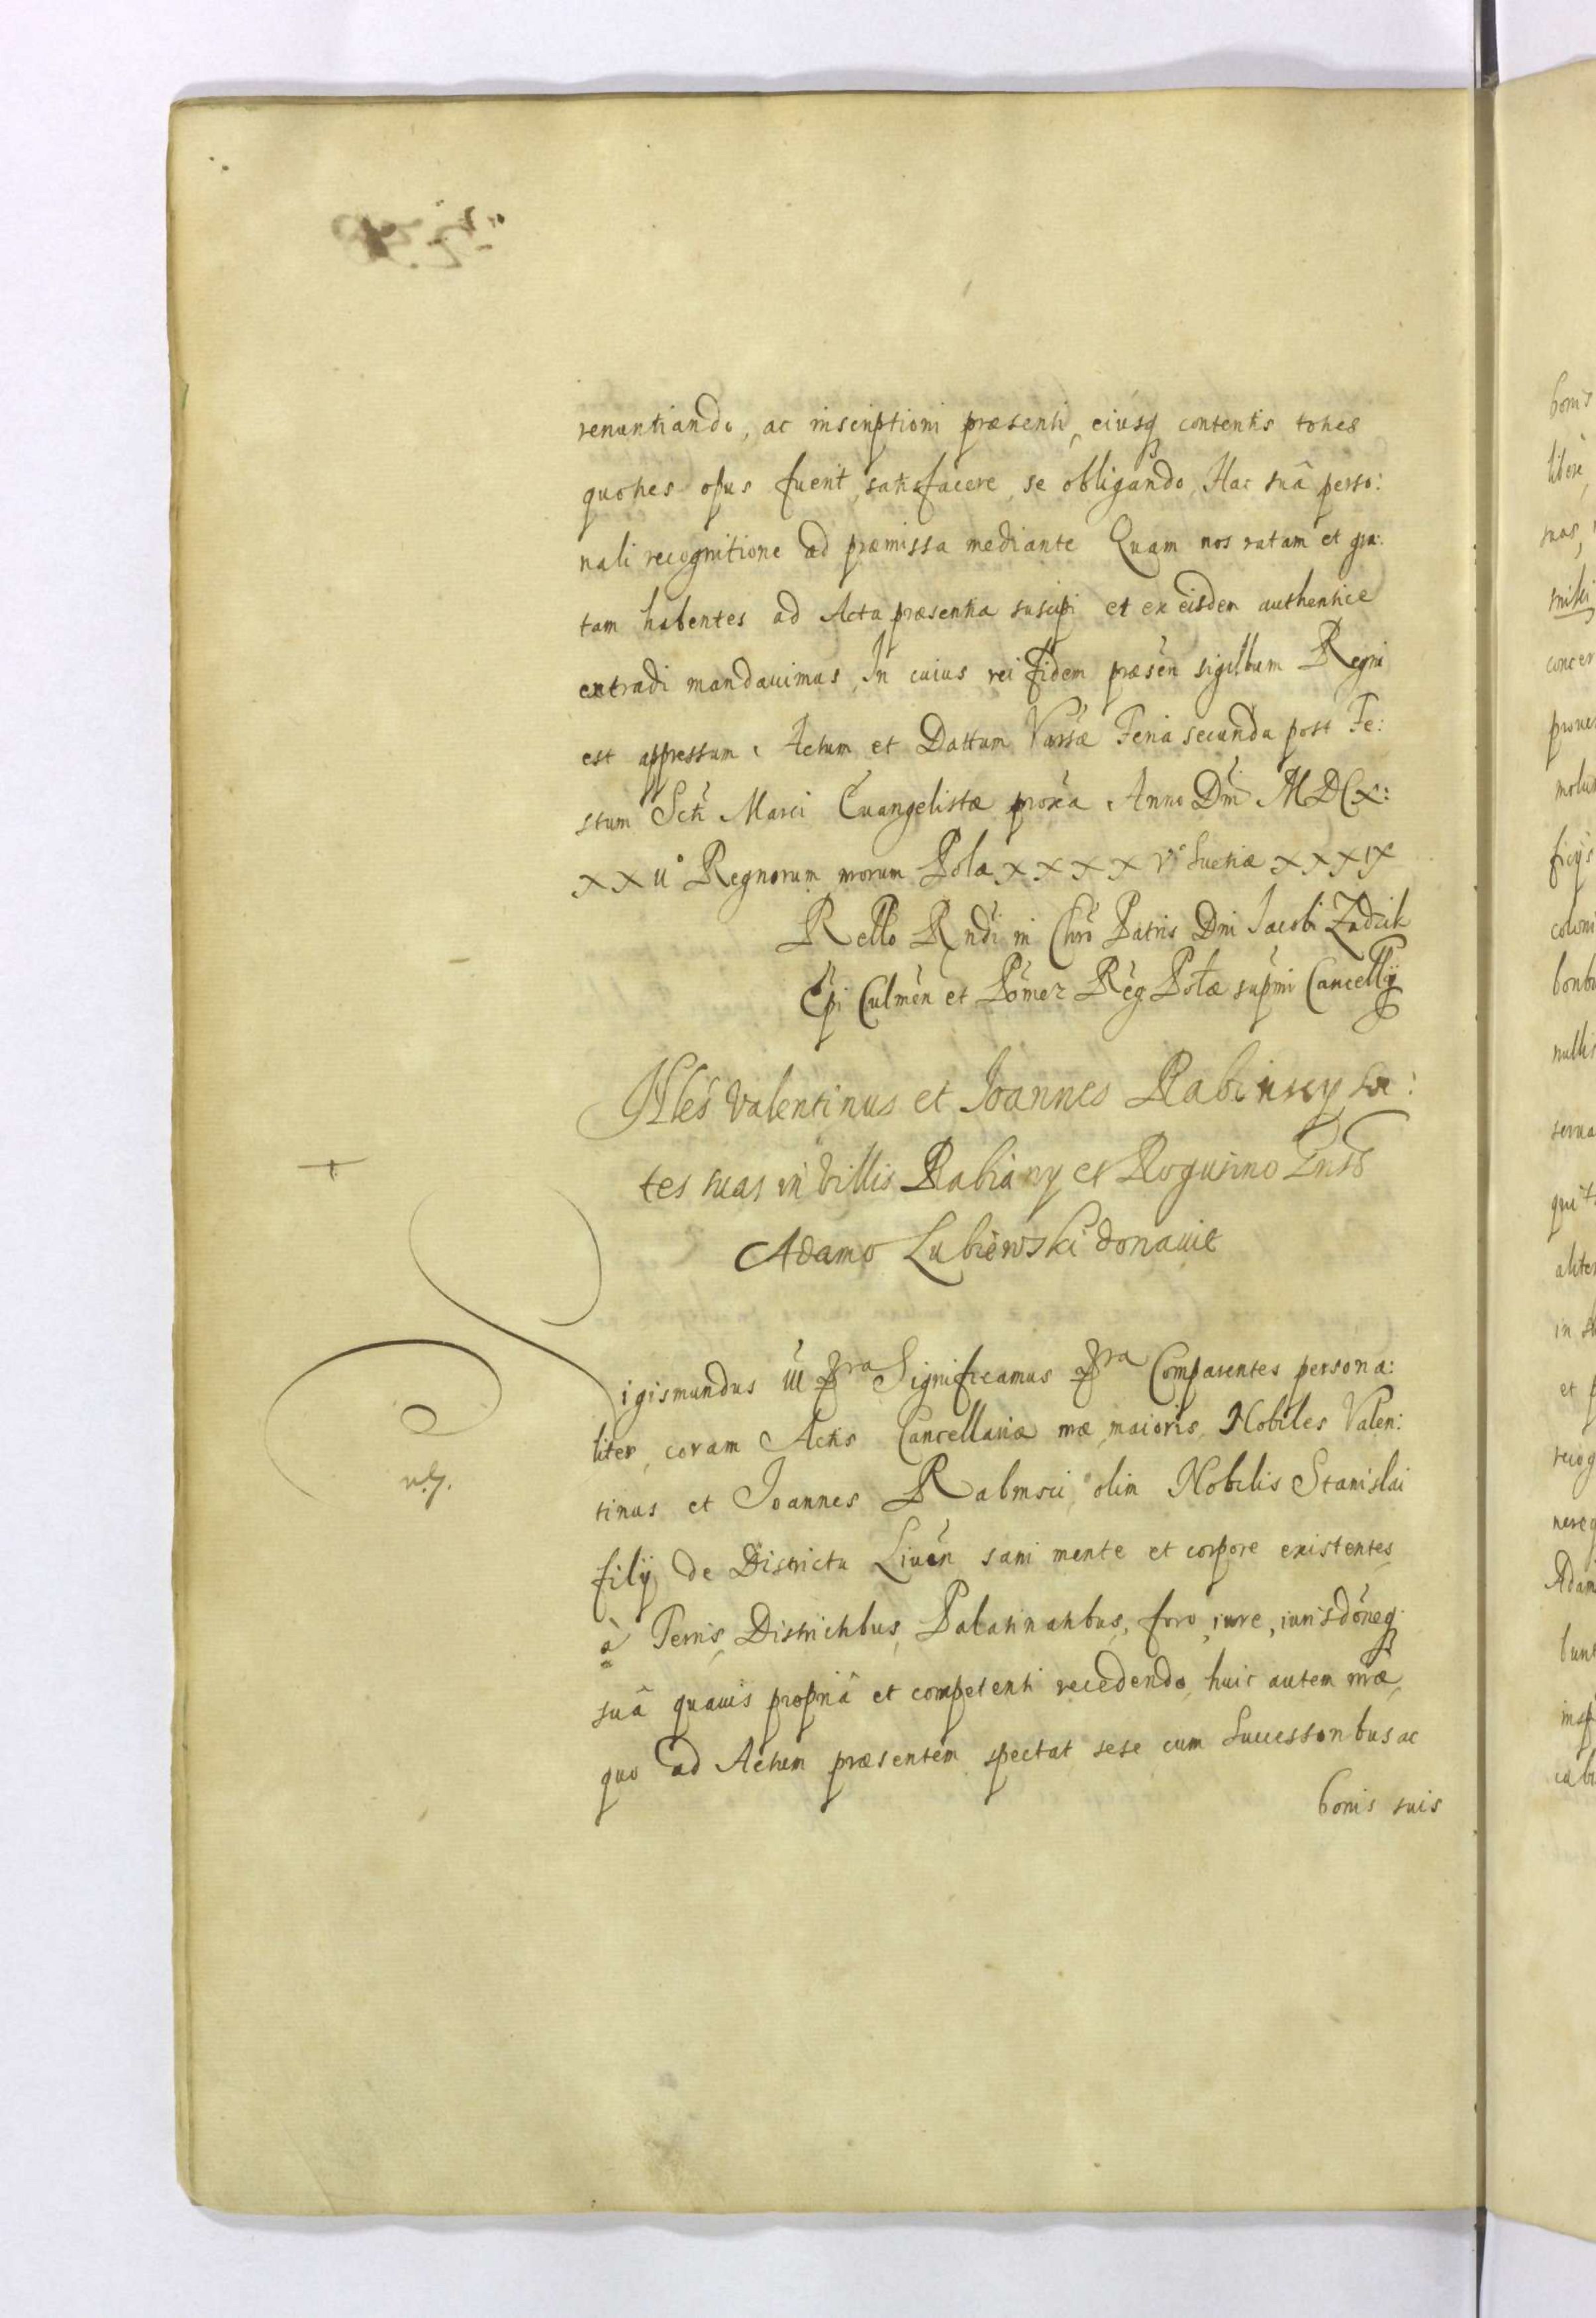 renuntiando, ac inscriptioni præsenti, eiusq contentis toties
quoties opus fuerit, satisfacere, se obligando, Hac suâ perso:
nali recognitione ad præmissa mediante Quam nos ratam et gra:
tam habentes ad Acta præsentia suscipi et ex eisdem authentice
extradi mandauimus, In cuius rei fidem præsen sigillum Regni
est appressum. Actum et Dattum Varsæ Feria secunda post Fe:
stum Scti Marci Euangelistæ proxa Anno Dni MDCX:
XXII° Regnorum nrorum Polæ XXXXV° Suetiæ XXXIX
Rello Rndi in Chro Patris Dni Jacobi Zadzik
Epi Culmen et Pomez Reg Polæ supmi Cancellÿ
Nles Valentinus et Joannes Rabinscy
tes suas in Villis Rabiany et Rogusino
Adamo Lubiewski donauit
igismundus III Significamus Comparentes persona:
liter, coram Actis Cancellariæ nræ maioris, Nobiles Valen:
tinus et Joannes Rabinscii, olim Nobilis Stanislai
filÿ de Districtu Liuen sani mente et corpore existentes,
à Terris, Districtibus, Palatinatibus, foro, iure, iurisdoneq
suâ quauis propriâ et competenti recedendo, huic autem nræ,
quo ad Actum præsentem spectat sese cum Successoribus ac
bonis suis